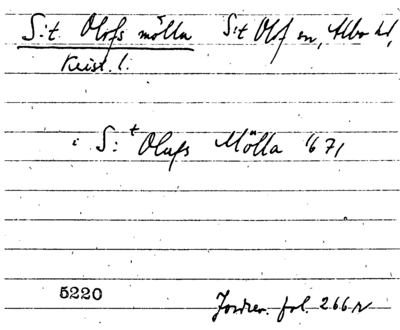 S:t Olofs mölla S:t Olof sn, Albo hd,
Krist. l.
i S:t Olufs Mölla 1671
5220 Jordrev. fol. 266 r